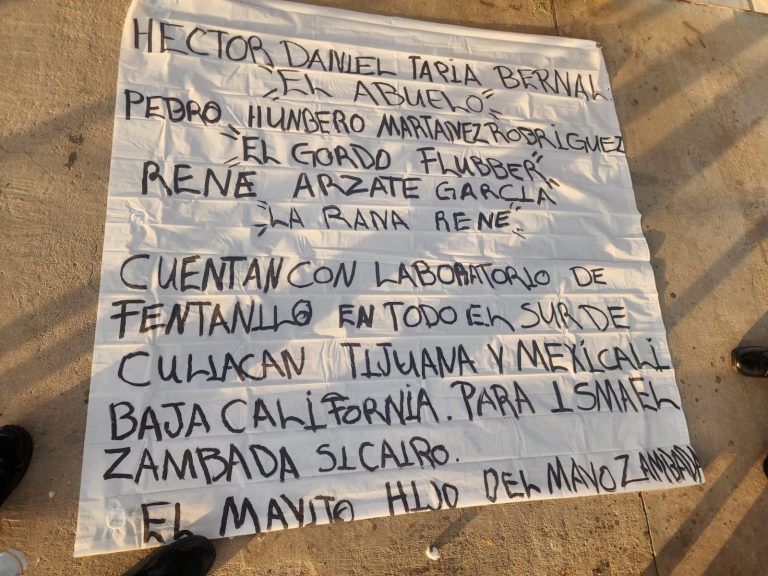 HECTOR DANIEL TAPIA BERNAL
"EL ABUELO"
PEDRO HUNBERO MARTANEZ RODRIGUEZ
"EL GORDO FLUBBER"
RENE ARZATE GARCIA
"LA RANA RENE"
CUENTAN CON LABORATORIO DE
FENTANILO EN TODO EL SUR DE
CULIACAN TIJUANA Y MEXICALI
BAJA CALIFORNIA. PARA ISMAEL
ZAMBADA SICAIRO.
EL MAYITO HIJO DEL MAYO ZAMBADA